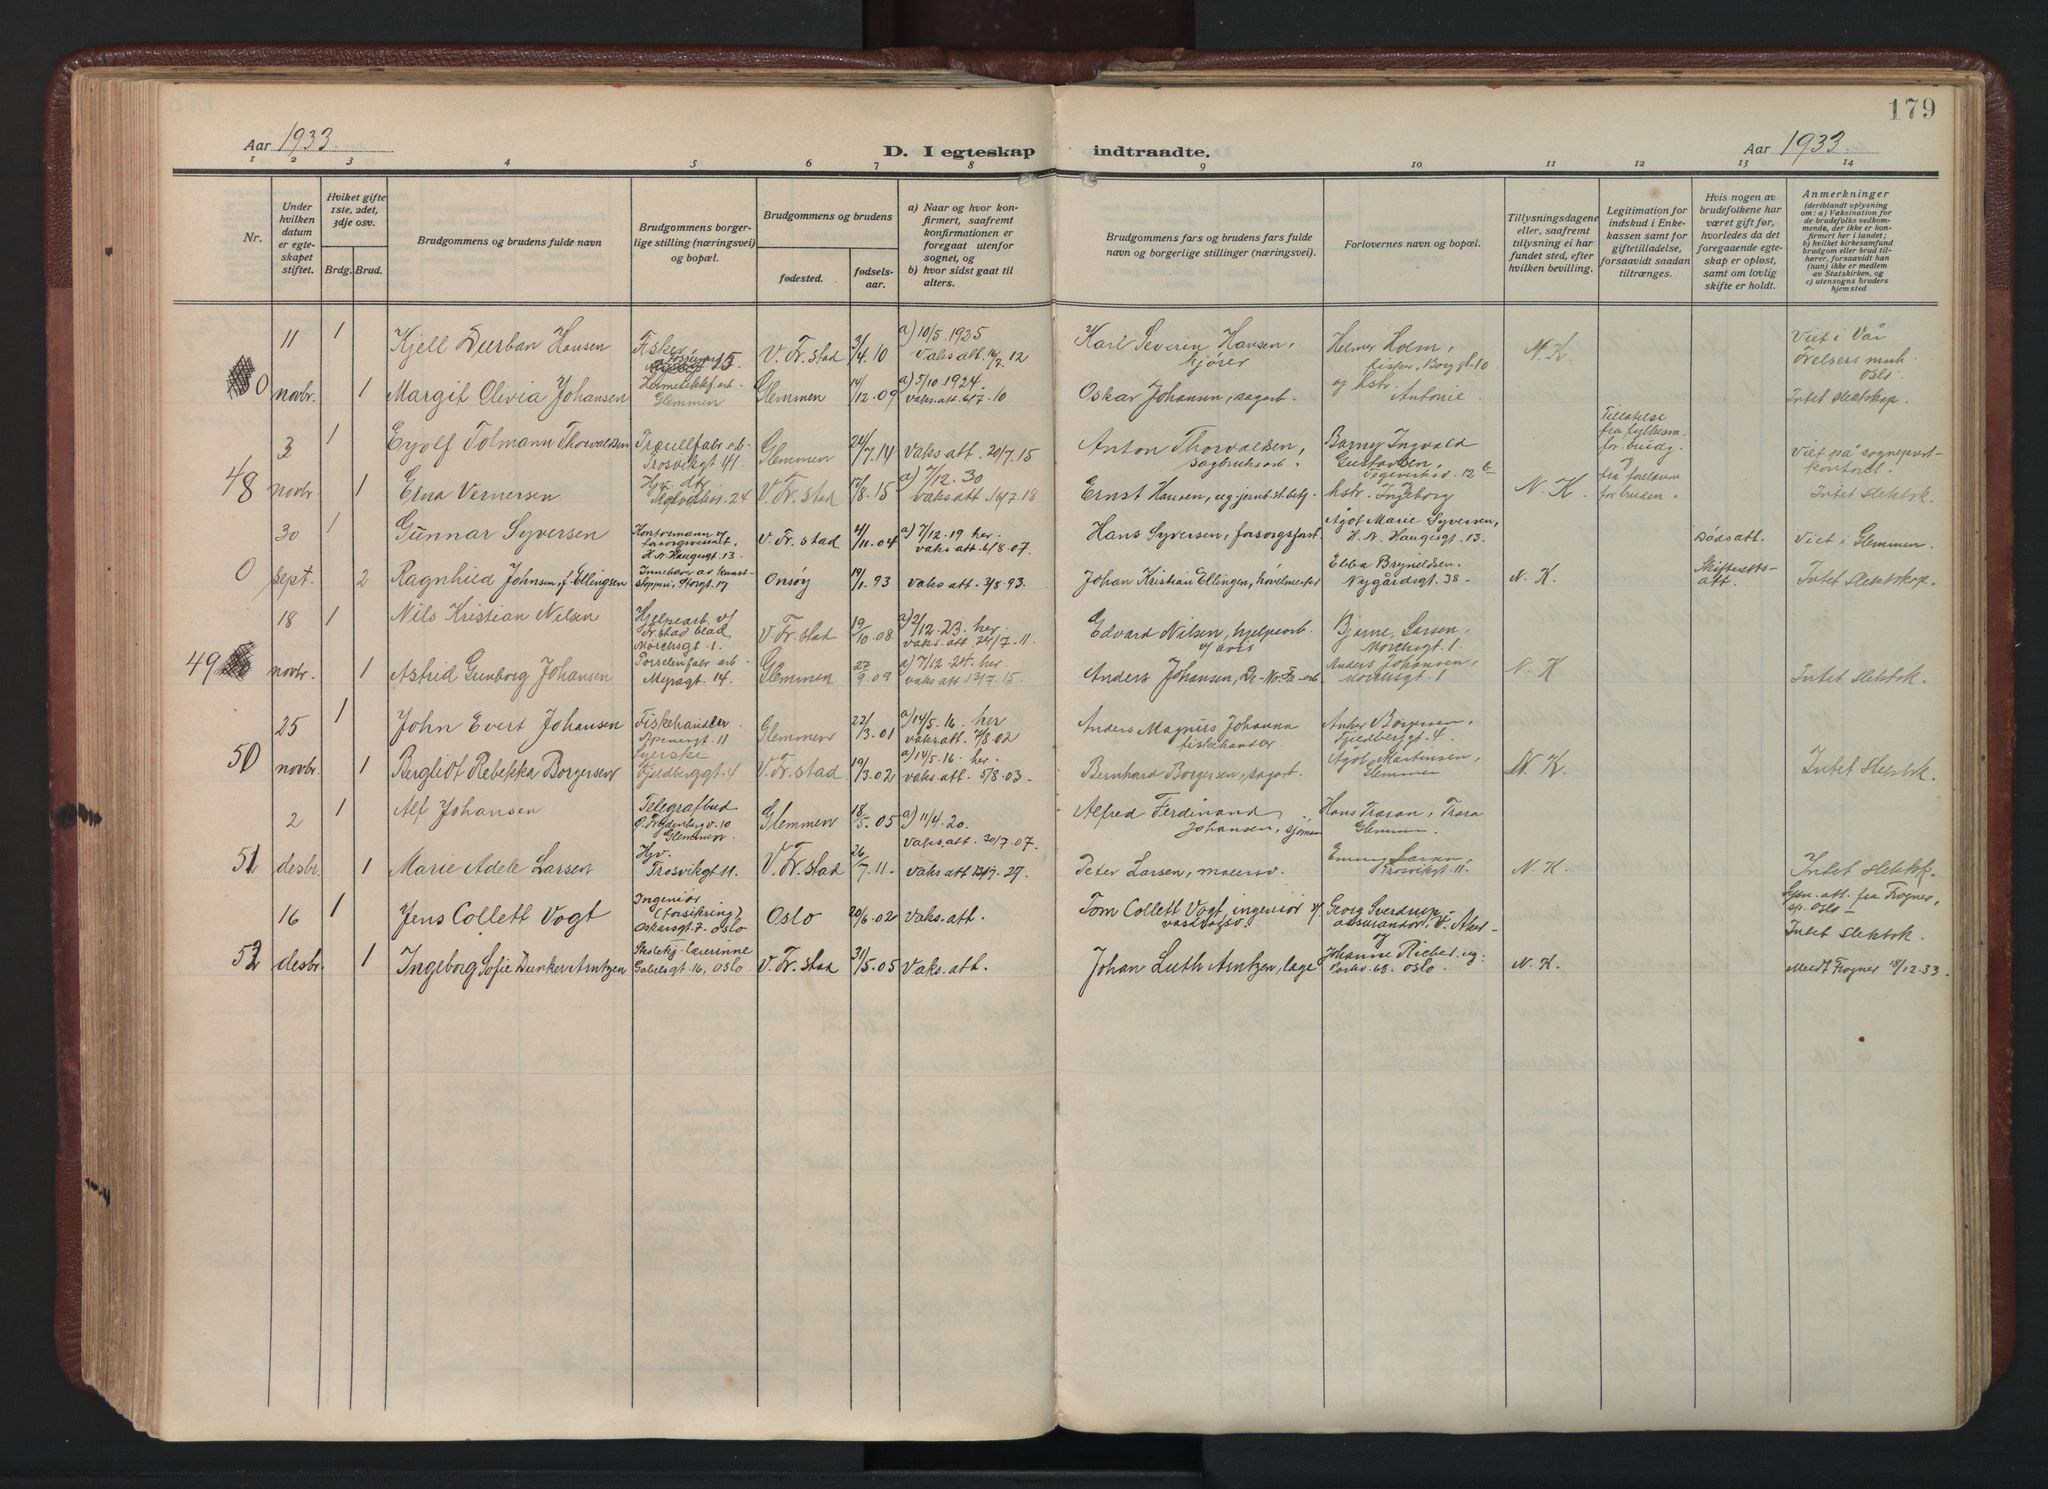 179
Aar 1933
D. I egteskap indtraadte.
Aar 1933
1 2 3 4 5 6 7 8 9 10 11 12 13 14
Nr.
Under hvilken datum er egteskapet stiftet.
Hvilket gifte 1ste, 2det, 3dje osv.
Brdg. Brud.
Brudgommens og brudens fulde navn
Brudgommens borgerlige stilling (næringsvei) og bopæl.
Brudgommens og brudens
fødested.
fødselsaar.
a) Naar og hvor konfirmert, saafremt konfirmationen er foregaat utenfor sognet, og
b) hvor sidst gaat til alters.
Brudgommens fars og brudens fars fulde navn og borgerlige stillinger (næringsvei).
Forlovernes navn og bopæl.
Tillysningsdagene eller, saafremt tillysning ei har fundet sted, efter hvilken bevilling.
Legitimation for indskud i Enkekassen samt for giftetilladelse, forsaavidt saadan tiltrænges.
Hvis nogen av brudefolkene har været gift før, hvorledes da det foregaaende egteskap er opløst, samt om lovlig skifte er holdt.
Anmerkninger
(deriblandt oplysning om: a) Vaksination for de brudefolks vedkommende, der ikke er konfirmert her i landet; b) hvilket kirkesamfund brudgom eller brud tilhører, forsaavidt han (hun) ikke er medlem av Statskirken, og c) utensogns bruders hjemsted
0 11 novbr. 1 Kjell Durban Hansen Fisker 15 V. Fr.stad 3/4.10 a) 10/5 1925 Vaks att. 16/7.12 Karl Severin Hansen, kjører Helmer Holm, fisker, Borggt. 10 N. K. Viet i Vår Frelsers menh. Oslo.
1 Margit Olivia Johansen Hermetikkf. arb. Glemmen Glemmen 14/12.09 a) 5/10.1924. Vaks. att. 6/7.10 Oskar Johansen, sagarb. og hstr. Antonie Intet slektskap.
48 3 novbr. 1 Eyolf Tolmann Thorvaldsen Trosvikgt. 41 Glemmen 24/7.14 Vaks att. 20/7.15 Anton Thorvaldsen, sagbruksarb. Barney Ingvald Gustavsen, 12b Tillatelse fra fylkesm. for brudg. og Viet på sogneprest-kontoret.
1 Erna Vernersen Hjv. dtr. 24 V. Fr.stad 17/8.15 a) 7/12.30 Vaks att. 16/7.18 Ernst Hansen, ug. jernb.st.betj. hstr. Ingeborg N. K. fra foreldrene for bruden. Intet slektsk.
0 30 sept. 1 Gunnar Syversen Kontormann v/ forsorgsvesenet. H. N. Haugesgt. 13 V. Fr.stad 4/11.04 a) 7/12.19 her. Vaks. att. 6/8.07. Hans Syversen, forsorgsforst. Ågot Marie Syversen, H. N. Haugesgt. 13. Dødsatt. Viet i Glemmen.
2 Ragnhild Johnsen, f. Ellingsen Innehaver av kunststopperi, Storgt. 17 Onsøy 19/1.93 Vaks att. 2/8.93. Johan Kristian Ellingsen, høvelmester Ebba Brynildsen. Nygårdsgt. 38. N. K. Skifteretts-att. Intet slektskap.
49 18 novbr. 1 Nils Kristian Nilsen Hjelpearb. v/ Fr.stad blad Mørchsgt. 1. V. Fr.stad 19/10.08 a) 2/12.23. her. Vaks. att. 24/7.11. Edvard Nilsen, hjelpearb. v/ avis Bjarne Larsen, Mørchsgt. 1
1 Astrid Gunborg Johansen Porselenfabr. arb. Myragt. 14. Glemmen 27/9.09 a) 7/12.24. her Vaks. att. 13/7.15. Anders Johansen, De-No-Fa-arb Anders Johansen, Mørchsgt. 1 N. K Intet slektsk.
50 25 novbr. 1 John Evert Johansen Fiskehandler 11 Glemmen 22/3.01 a) 14/5.16. her Vaks. att. 7/8.02 Anders Magnus Johansen fiskehandler. Anker Borgersen, Fjeldberggt. 4.
1 Berglidt Rebekka Borgersen Syerske Fjeldberggt. 4 V. Fr.stad 19/3.02 a) 14/5.16. her. Vaks att. 5/8.03. Bernhard Borgersen, sagarb. Ågot Martinsen, Glemmen N. K. Intet slektsk.
51 2 desbr. 1 Alf Johansen Telegrafbud Glemmen. Glemmen 18/5.05 a) 11/4.20. Vaks. att. 30/7.07. Alfred Ferdinand Johansen, sjømann Hans Traran, Trara Glemmen.
1 Marie Adele Larsen Hjv. Trosvikgt. 11. V. Fr.stad 26/7.11. Vaks. att. 9.27. Peter Larsen, murerv. Larsen, Trosvikgt. 11. N. K. Intet slektsk.
52 16 desbr. 1 Jens Collett Vogt Ingeniør (forsikring) Oskarsgt. 7. Oslo Oslo 20/6.02 Vaks. att. Tom Collett Vogt, ingeniør v/ vassdragsv. Georg Sverdrup, assurandør, V. Aker og Gjen. att. fra Frogner, sp. Oslo – Intet slektsk.
1 Ingeborg Sofie Dunker Arntzen Skolekj.-lærerinne Gabelsgt. 16, Oslo V. Fr.stad 31/5.05 Vaks. att. Johan Luth Arntzen, læge Johanne Rieber, ug. 68. Oslo. N. K. Meldt Frogner 18/12.33.